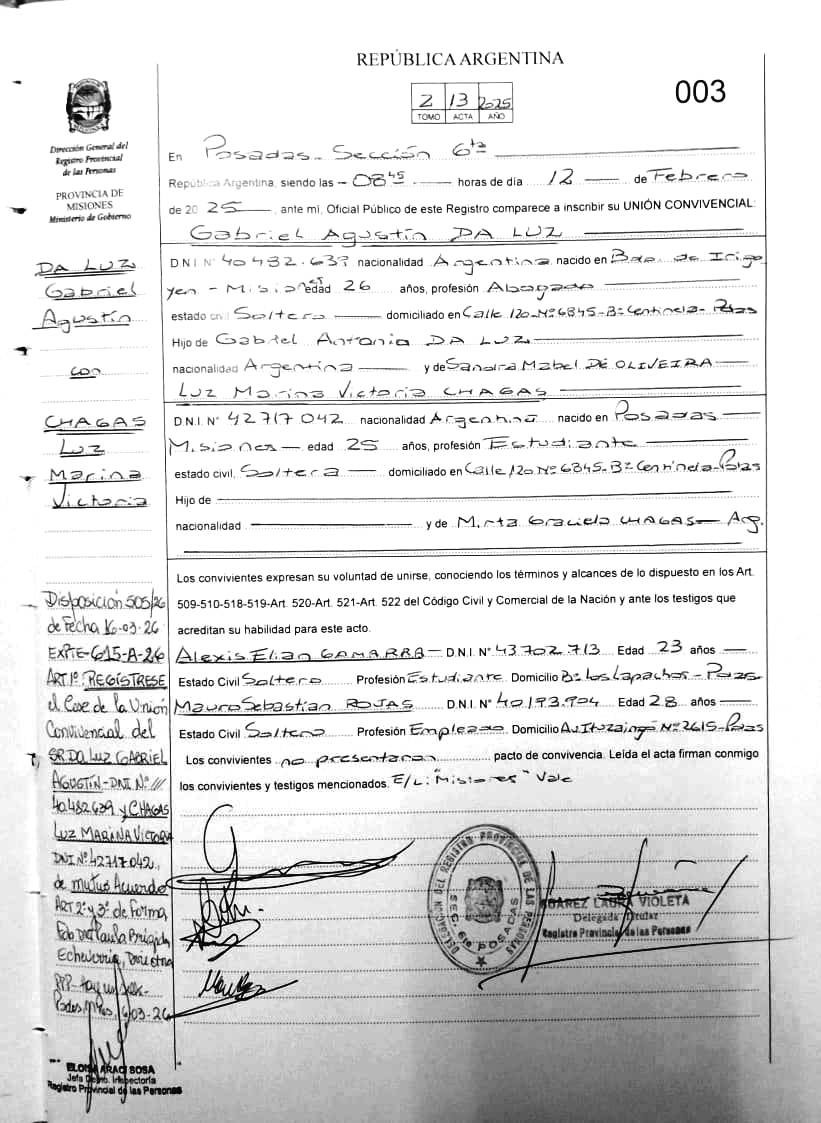 REPÚBLICA ARGENTINA
2 13 2025
TOMO ACTA AÑO
003
Dirección General del
Registro Provincial
de las Personas
PROVINCIA DE
MISIONES
Ministerio de Gobierno
En Posadas - Sección 6ta
República Argentina, siendo las - 08 45 horas de día 12 de Febrero
de 20 25, ante mí, Oficial Público de este Registro comparece a inscribir su UNIÓN CONVIVENCIAL:
Gabriel Agustín DA LUZ
D.N.I. N° 40482.639 nacionalidad Argentina nacido en Bdo. de Irigo
yen - Misiones edad 26 años, profesión Abogado
estado civil Soltero domiciliado en Calle 120 N° 6845 - B° Centinela - Pdas
Hijo de Gabriel Antonio DA LUZ
nacionalidad Argentina y de Sandra Mabel DE OLIVEIRA
Luz Marina Victoria CHAGAS
D.N.I. N° 42717042 nacionalidad Argentina nacido en Posadas
Misiones - edad 25 años, profesión Estudiante
estado civil, Soltera domiciliado en Calle 120 N° 6845 - B° Centinela - Pdas
Hijo de
nacionalidad y de Mirta Graciela CHAGAS - Arg.
DA LUZ
Gabriel
Agustín
con
CHAGAS
Luz
Marina
Victoria
Los convivientes expresan su voluntad de unirse, conociendo los términos y alcances de lo dispuesto en los Art.
509-510-518-519-Art. 520-Art. 521-Art. 522 del Código Civil y Comercial de la Nación y ante los testigos que
acreditan su habilidad para este acto.
Alexis Elian GAMARRA - D.N.I. N° 43.702.713 Edad 23 años
Estado Civil Soltero Profesión Estudiante Domicilio B° los Lapachos - Pdas
Mauro Sebastian ROJAS D.N.I. N° 40.193.904 Edad 28 años
Estado Civil Soltero Profesión Empleado Domicilio Av. Ituzaingó N° 2615 - Pdas
Los convivientes no presentaran pacto de convivencia. Leída el acta firman conmigo
los convivientes y testigos mencionados. E/L: "Misiones" Vale
Disposición 505/26
de Fecha 16-03-26
EXPTE-615-A-26
ART 1°: REGÍSTRESE
el Cese de la Unión
Convivencial del
SR DA LUZ GABRIEL
AGUSTÍN - DNI N°
40.482639 y CHAGAS
LUZ MARINA VICTORIA
DNI N° 42717042
de mutuo Acuerdo
ART 2° y 3° de Forma,
Paula Brigida
Echeverria, Directora
Pdas, Mnes, 03-26
ELOISA ARACI SOSA
Jefa Dpto. Inspectoría
Registro Provincial de las Personas
DELEGACION DEL REGISTRO PROVINCIAL DE LAS PERSONAS
SEC. 6ta POSADAS
LAURA VIOLETA
Delegada Titular
Registro Provincial de las Personas